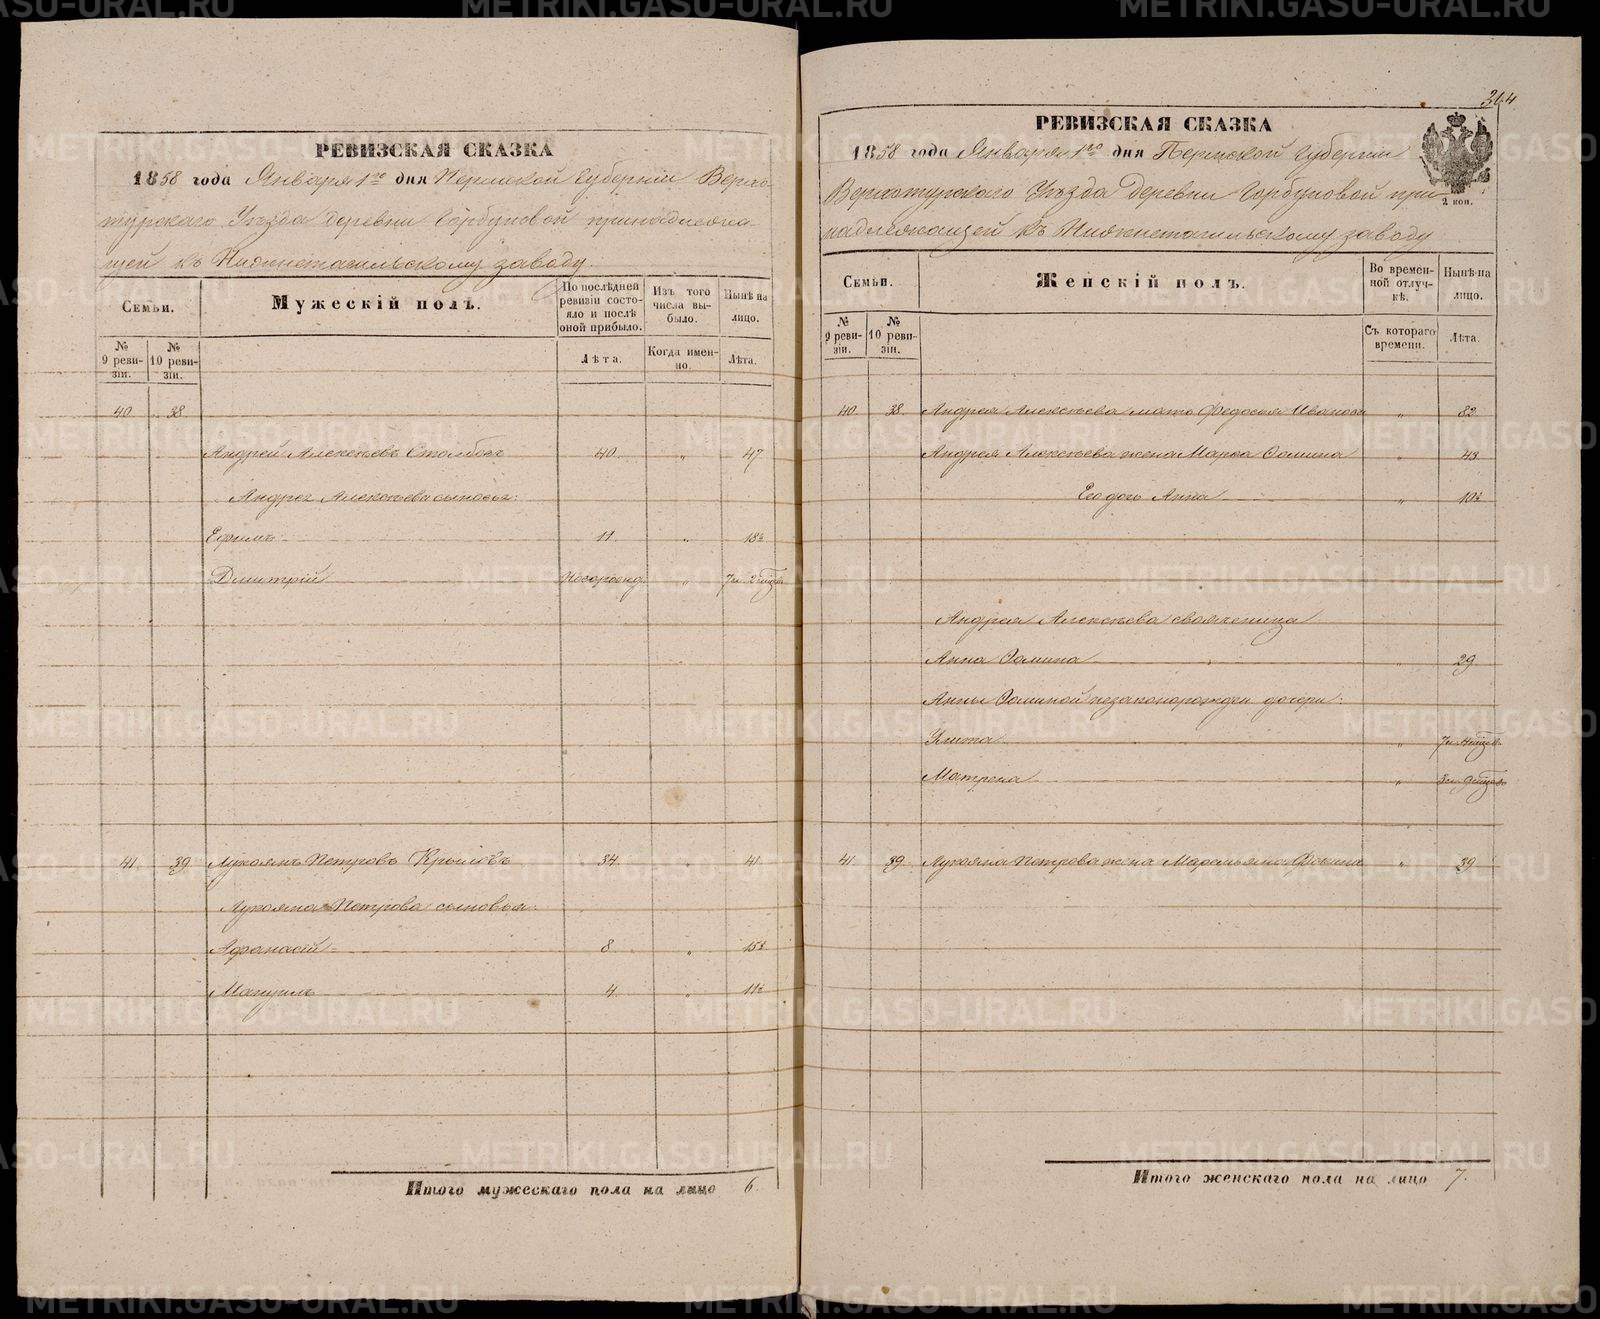 РЕВИЗСКАЯ СКАЗКА
1858 года Января 1го дня Пермской Губерніи Верхо-
турскаго Уѣзда деревни Горбуновой принадлежа-
щей къ Нижнетагильскому заводу.
Семьи.
Мужескій полъ.
По послѣдней ревизіи состояло и послѣ оной прибыло.
Изъ того числа выбыло.
Нынѣ на лицо.
№ 9 ревизіи.
№ 10 ревизіи.
Лѣта.
Когда именно.
Лѣта.
40 38
Андрей Алексѣевъ 40 " 47
Андрея Алексѣева сыновья:
Ефимъ 11 " 18½
Дмитрій "
41. 39. Лукоянъ Петровъ Крыловъ 34 " 41
Лукояна Петрова сыновья:
Афанасій 8 " 15½
4 " 11½
Итого мужескаго пола на лицо 6.
304
РЕВИЗСКАЯ СКАЗКА
1858 года Января 1го дня Пермской Губерніи
2 коп.
Верхотурскаго Уѣзда деревни Горбуновой при-
надлежащей къ Нижнетагильскому заводу
Семьи.
Женскій полъ.
Во временной отлучкѣ.
Нынѣ на лицо.
№ 9 ревизіи.
№ 10 ревизіи.
Съ котораго времени.
Лѣта.
40 38 Андрея Алексѣева мать Федосья Иванова " 82
Андрея Алексѣева жена Марфа Фомина " 43
Его дочь Анна " 10½
Андрея Алексѣева свояченица
Анна Фомина " 29
Анны Фоминой незаконорожден. дочери:
Улита "
Матрена "
41 39 Лукояна Петрова жена Маремьяна " 39
Итого женскаго пола на лицо 7.
METRIKI.GASO-URAL.RU